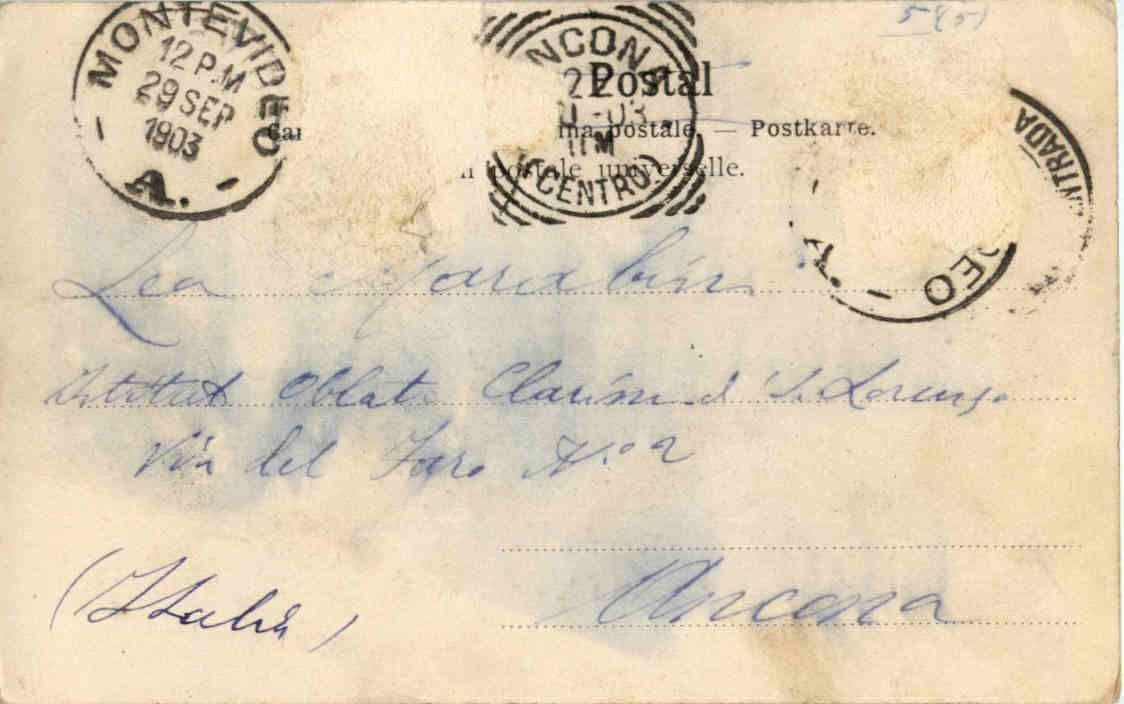 MONTEVIDEO
12 P.M
29 SEP
1903
A.
ANCONA
22
-03
11M
(CENTRO)
5 (5)
Postal
postale — Postkarte.
postale universelle.
ENTRADA
DEO
A.
Lea
Oblat Clarim d'S. Lorenzo
Via del Faro N.o 2
Ancona
(Italia)